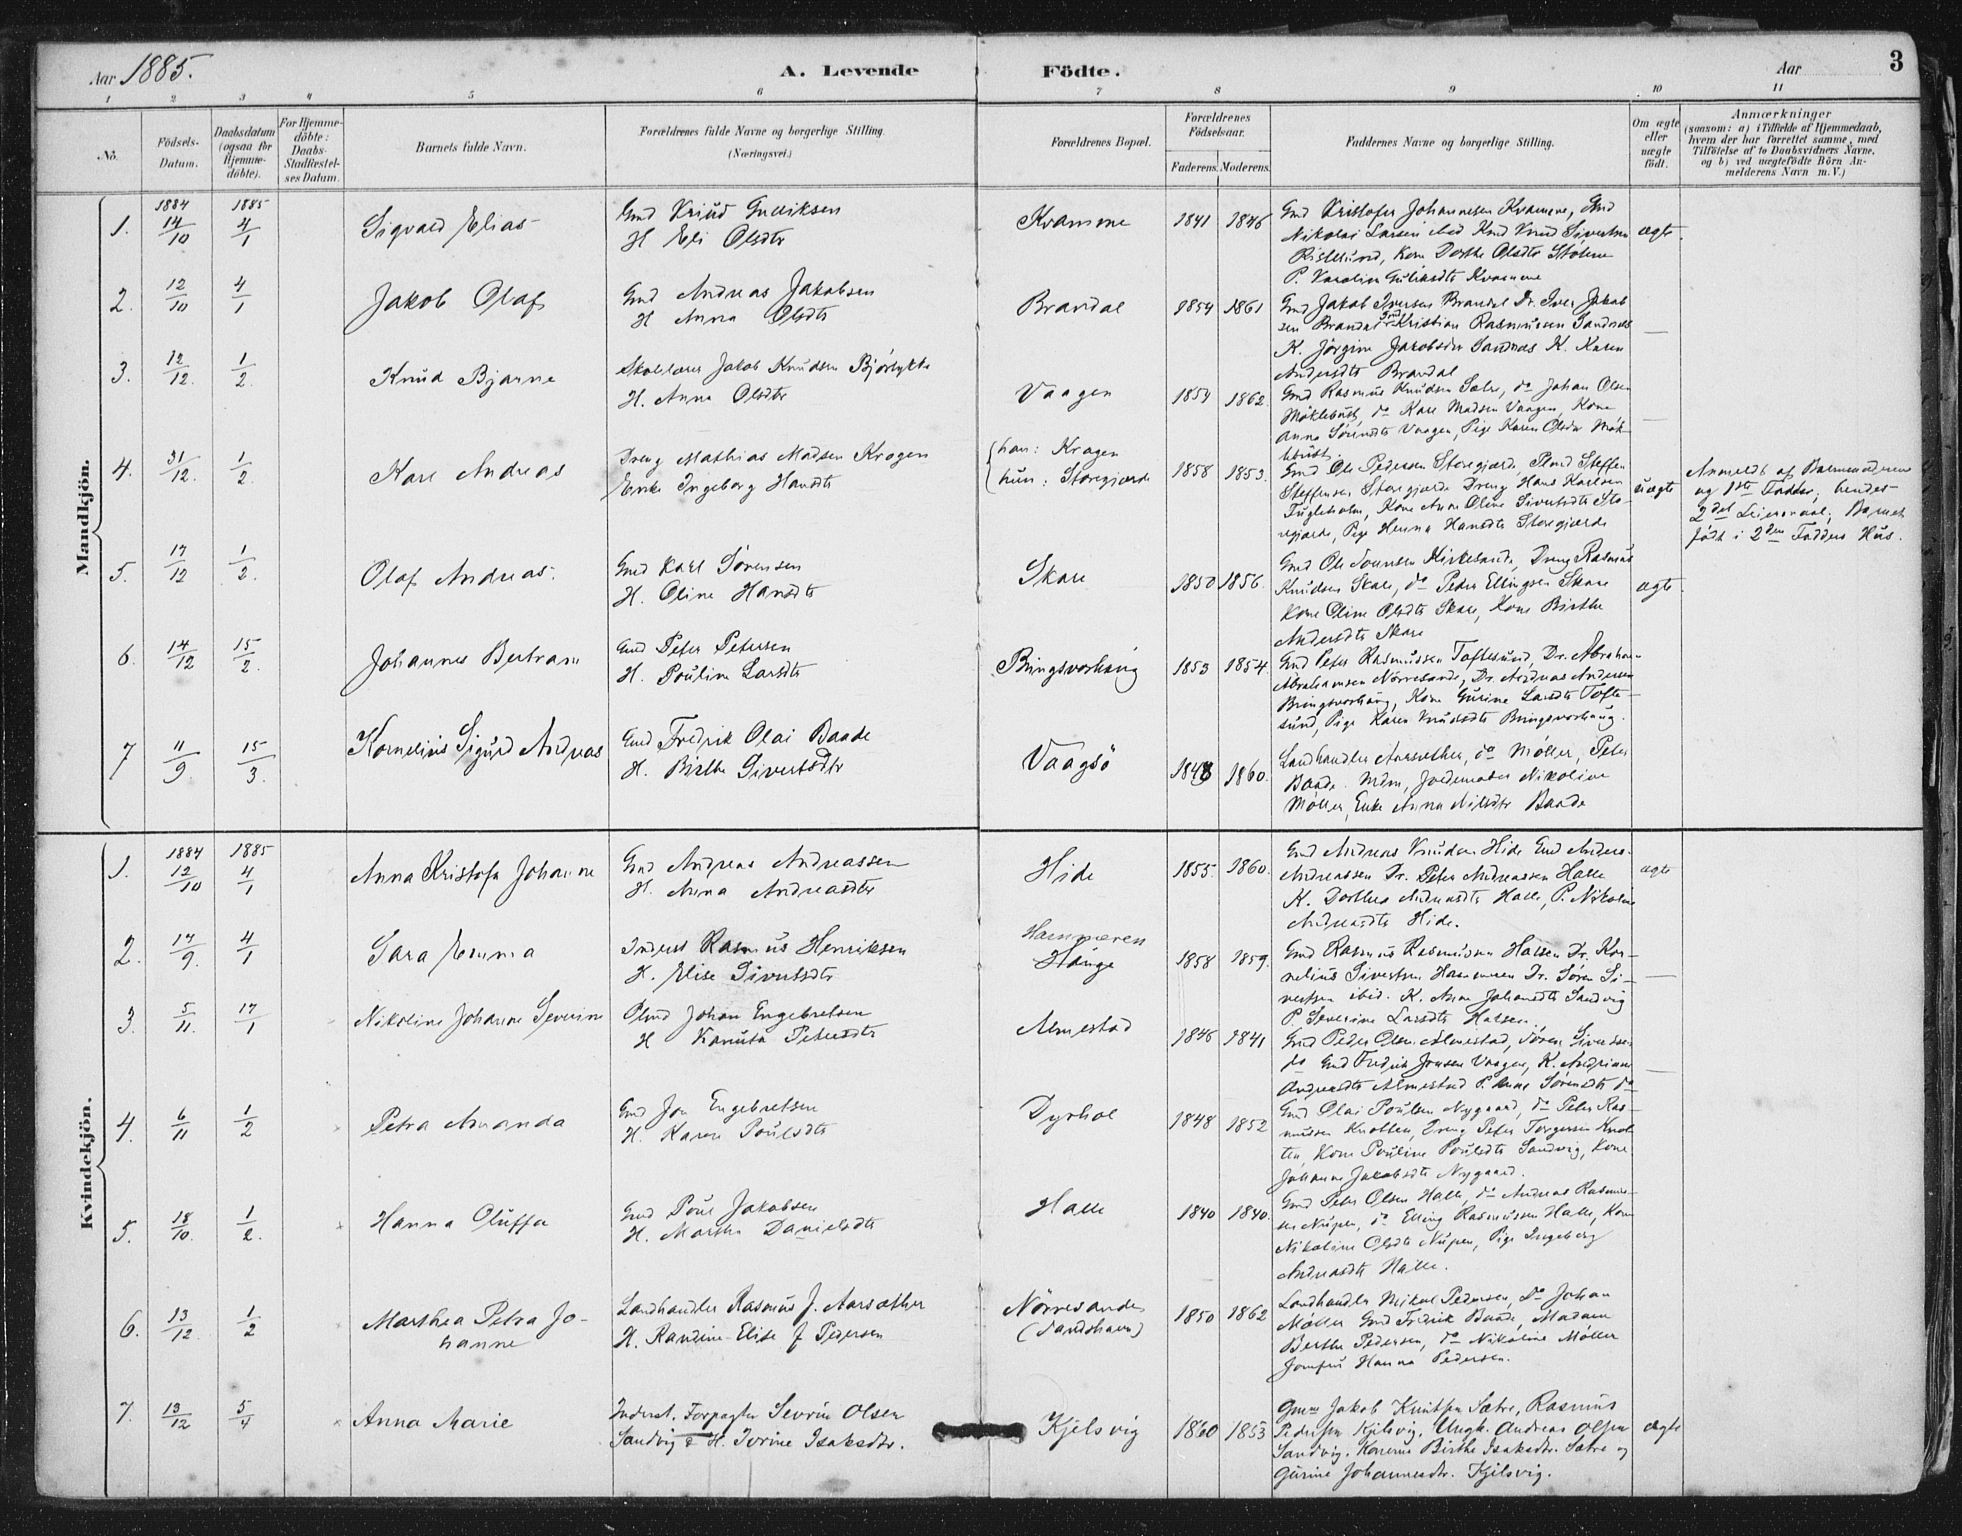 Aar 1885.
A. Levende Födte.
Aar
3
1 2 3 4 5 6 7 8 9 10 11
No.
Födsels-Datum.
Daabsdatum (ogsaa for Hjemme-döbte).
For Hjemme-döbte: Daabs-Stadfæstel-ses Datum.
Barnets fulde Navn.
Forældrenes fulde Navne og borgerlige Stilling.
(Næringsvei.)
Forældrenes Bopæl.
Forældrenes Födselsaar.
Faderens. Moderens.
Faddernes Navne og borgerlige Stilling.
Om ægte eller uægte födt.
Anmærkninger
(saasom: a) i Tilfælde af Hjemmedaab,
hvem der har forrettet samme, med
Tilföielse af to Daabsvidners Navne,
og b) ved uægtefödte Börn An-
melderens Navn m. V.)
Mandkjön.
1884 1885
1. 14/10 4/1 Sigvald Elias Gmd Knud Gulliksen
H Eli Olsdtr
Kvamme 1841 1846
Gmd Kristofer Johannesen Kvamme, Gmd
Nikolai Larsen ibid Gmd Knud Sivertsen
Ristesund, Kone Dorthe Olsdtr
P. Karoline Guliksdtr Kvamme
ægte.
2. 12/10 4/1 Jakob Olaf Gmd Andreas Jakobsen
H Anna Olsdtr
Brandal 1854 1861
Gmd Jakob Iversen Brandal Dr. Iver Jakob
sen Brandal Gmd Kristian Rasmussen Sandnes
K. Jörgine Jacobsdtr Sandnes K. Karen
Andersdtr Brandal
—
3. 12/12. 1/2. Knud Bjarne Skolelærer Jakob Knudsen Bjørlykke
H. Anna Olsdtr
Vaagen 1854 1862.
Gmd Rasmus Knudsen Sæter, do Johan Olsen
Møklebust, do Kare Madsen Vaagen, Kone
Anna Sørensdtr Vaagen, Pige Karen Olsdtr Møk-
lebust.
—
4. 31/12. 1/2. Karl Andreas Dreng Mathias Madsen Kragen
Enke Ingeborg Hansdtr
han: Kragen
hun: Storegjærde
1858 1853.
Gmd Ole Pedersen Storegjærde, Steffen
Steffensen Storegjærde Dreng Hans Karlsen
Fugleholm, Kone Anne Oline Sivertsdtr Sto-
regjærde, Pige Hanna Hansdtr Storegjærde
uægte
Anmeldt af Barnemoderen
og 1ste Fadder; hendes
2det Leiermaal; Barnet
födt i 2den Fadders Hus.
5. 17/12 1/2. Olaf Andreas. Gmd Karl Sørensen
H. Oline Hansdtr
Skare 1850 1856.
Gmd Ole Kirkesand, Dreng Rasmus
Knudsen Skare, do Peder Ellingsen Skare
Kone Oline Olsdtr Skare, Kone Birthe
Andersdtr Skare
ægte.
6. 14/12 15/2. Johannes Bertram Gmd Peter Petersen
H. Pouline Larsdtr
Bringsvorhaug 1853 1854.
Gmd Peter Rasmussen Toftesund, Dr. Abraham
Abrahamsen Nörresande, Dr. Andreas Andersen
Bringsvorhaug, Kone Gurine Larsdtr Tofte-
sund, Pige Karen Knudsdtr Bringsvorhaug.
7 11/9. 15/3. Kornelius Sigurd Andreas Gmd Fredrik Olai Baade
H. Birthe Sivertsdtr
Vaagsö 1848 1860.
Landhandler Aarsæther, do Møller, Peter
Baade. Mdm, Jordemoder Nikoline
Møller, Enke Anna Nilsdtr Baade
Kvindekjön.
1884 1885
1. 12/10 4/1 Anna Kristofa Johanne Gmd Andreas Andreassen
H. Anna Andreasdtr
Hide 1855. 1860.
Gmd Andreas Knudsen Hide Gmd Anders
Andreassen Dr. Peter Andreassen Halle
K. Dorthea Andreasdtr Halle, P. Nikoline
Andreasdtr Hide.
ægte
2. 17/9. 4/1 Sara Emma Inderst Rasmus Henriksen
H. Elise Sivertsdtr
Hammeren
Hauge
1858 1859.
Gmd Rasmus Rasmussen Halsen Dr. Kor-
nelius Sivertsen Hammeren Dr. Sören Si-
vertsen ibid. K. Anne Johansdtr Sandvig
P Severine Larsdtr Halsen.
—
3. 5/11. 17/1 Nikoline Johanne Severine Johan Engebretsen
H Petersdtr
Almestad 1846 1841
Gmd Peder Olsen Almestad, Sören Sivertsen
do Gmd Fredrik Jonsen Vaagen, K. Andriane
Andreasdtr Almestad P. Anne Sørensdtr do
—
4. 6/11 1/2 Petra Amanda Gmd Jon Engebretsen
H. Karen Poulsdtr
Dyrhol 1848 1852
Gmd Olai Poulsen Nygaard, do Peter Ras-
mussen Knotten, Dreng Peter Torgersen Knot-
ten, Kone Pouline Poulsdtr Sandvig, Kone
Johanne Jakobsdtr Nygaard.
5. 18/10. 1/2. Hanna Oluffa Gmd Poul Jakobsen
H. Martha Danielsdtr
Halle 1840 1840.
Gmd Peter Olsen Halle, do Andreas Rasmus-
sen Nupen, do Elling Rasmussen Halle, Kone
Nikoline Olsdtr Nupen, Pige Ingeborg
Andreasdtr Halle.
6. 13/12. 1/2 Marthea Petra Jo-
hanne
Landhandler Rasmus J. Aarsæther
H. Randine Elise f Pedersen
Nörresande
(Sandshavn)
1850 1862
Landhandler Mikal Pedersen, do Johan
Møller Gmd Fredrik Baade, Madam
Berthe Pedersen, do Nikoline Møller
Jomfru Hanna Pedersen.
7. 13/12 5/4 Anna Marie Inderst. Forpagter Sevrin Olsen
Sandvig & H. Ivrine Isaksdtr.
Kjelsvig 1860 1853
Gmm Jakob Knutsen Sætre, Rasmus
Pedersen Kjelsvig. Ungk. Andreas Olsen
Sandvig. Konerne Birthe Isaksdtr. Sætre og
Gurine Johannesdtr. Kjelsvig.
ægte